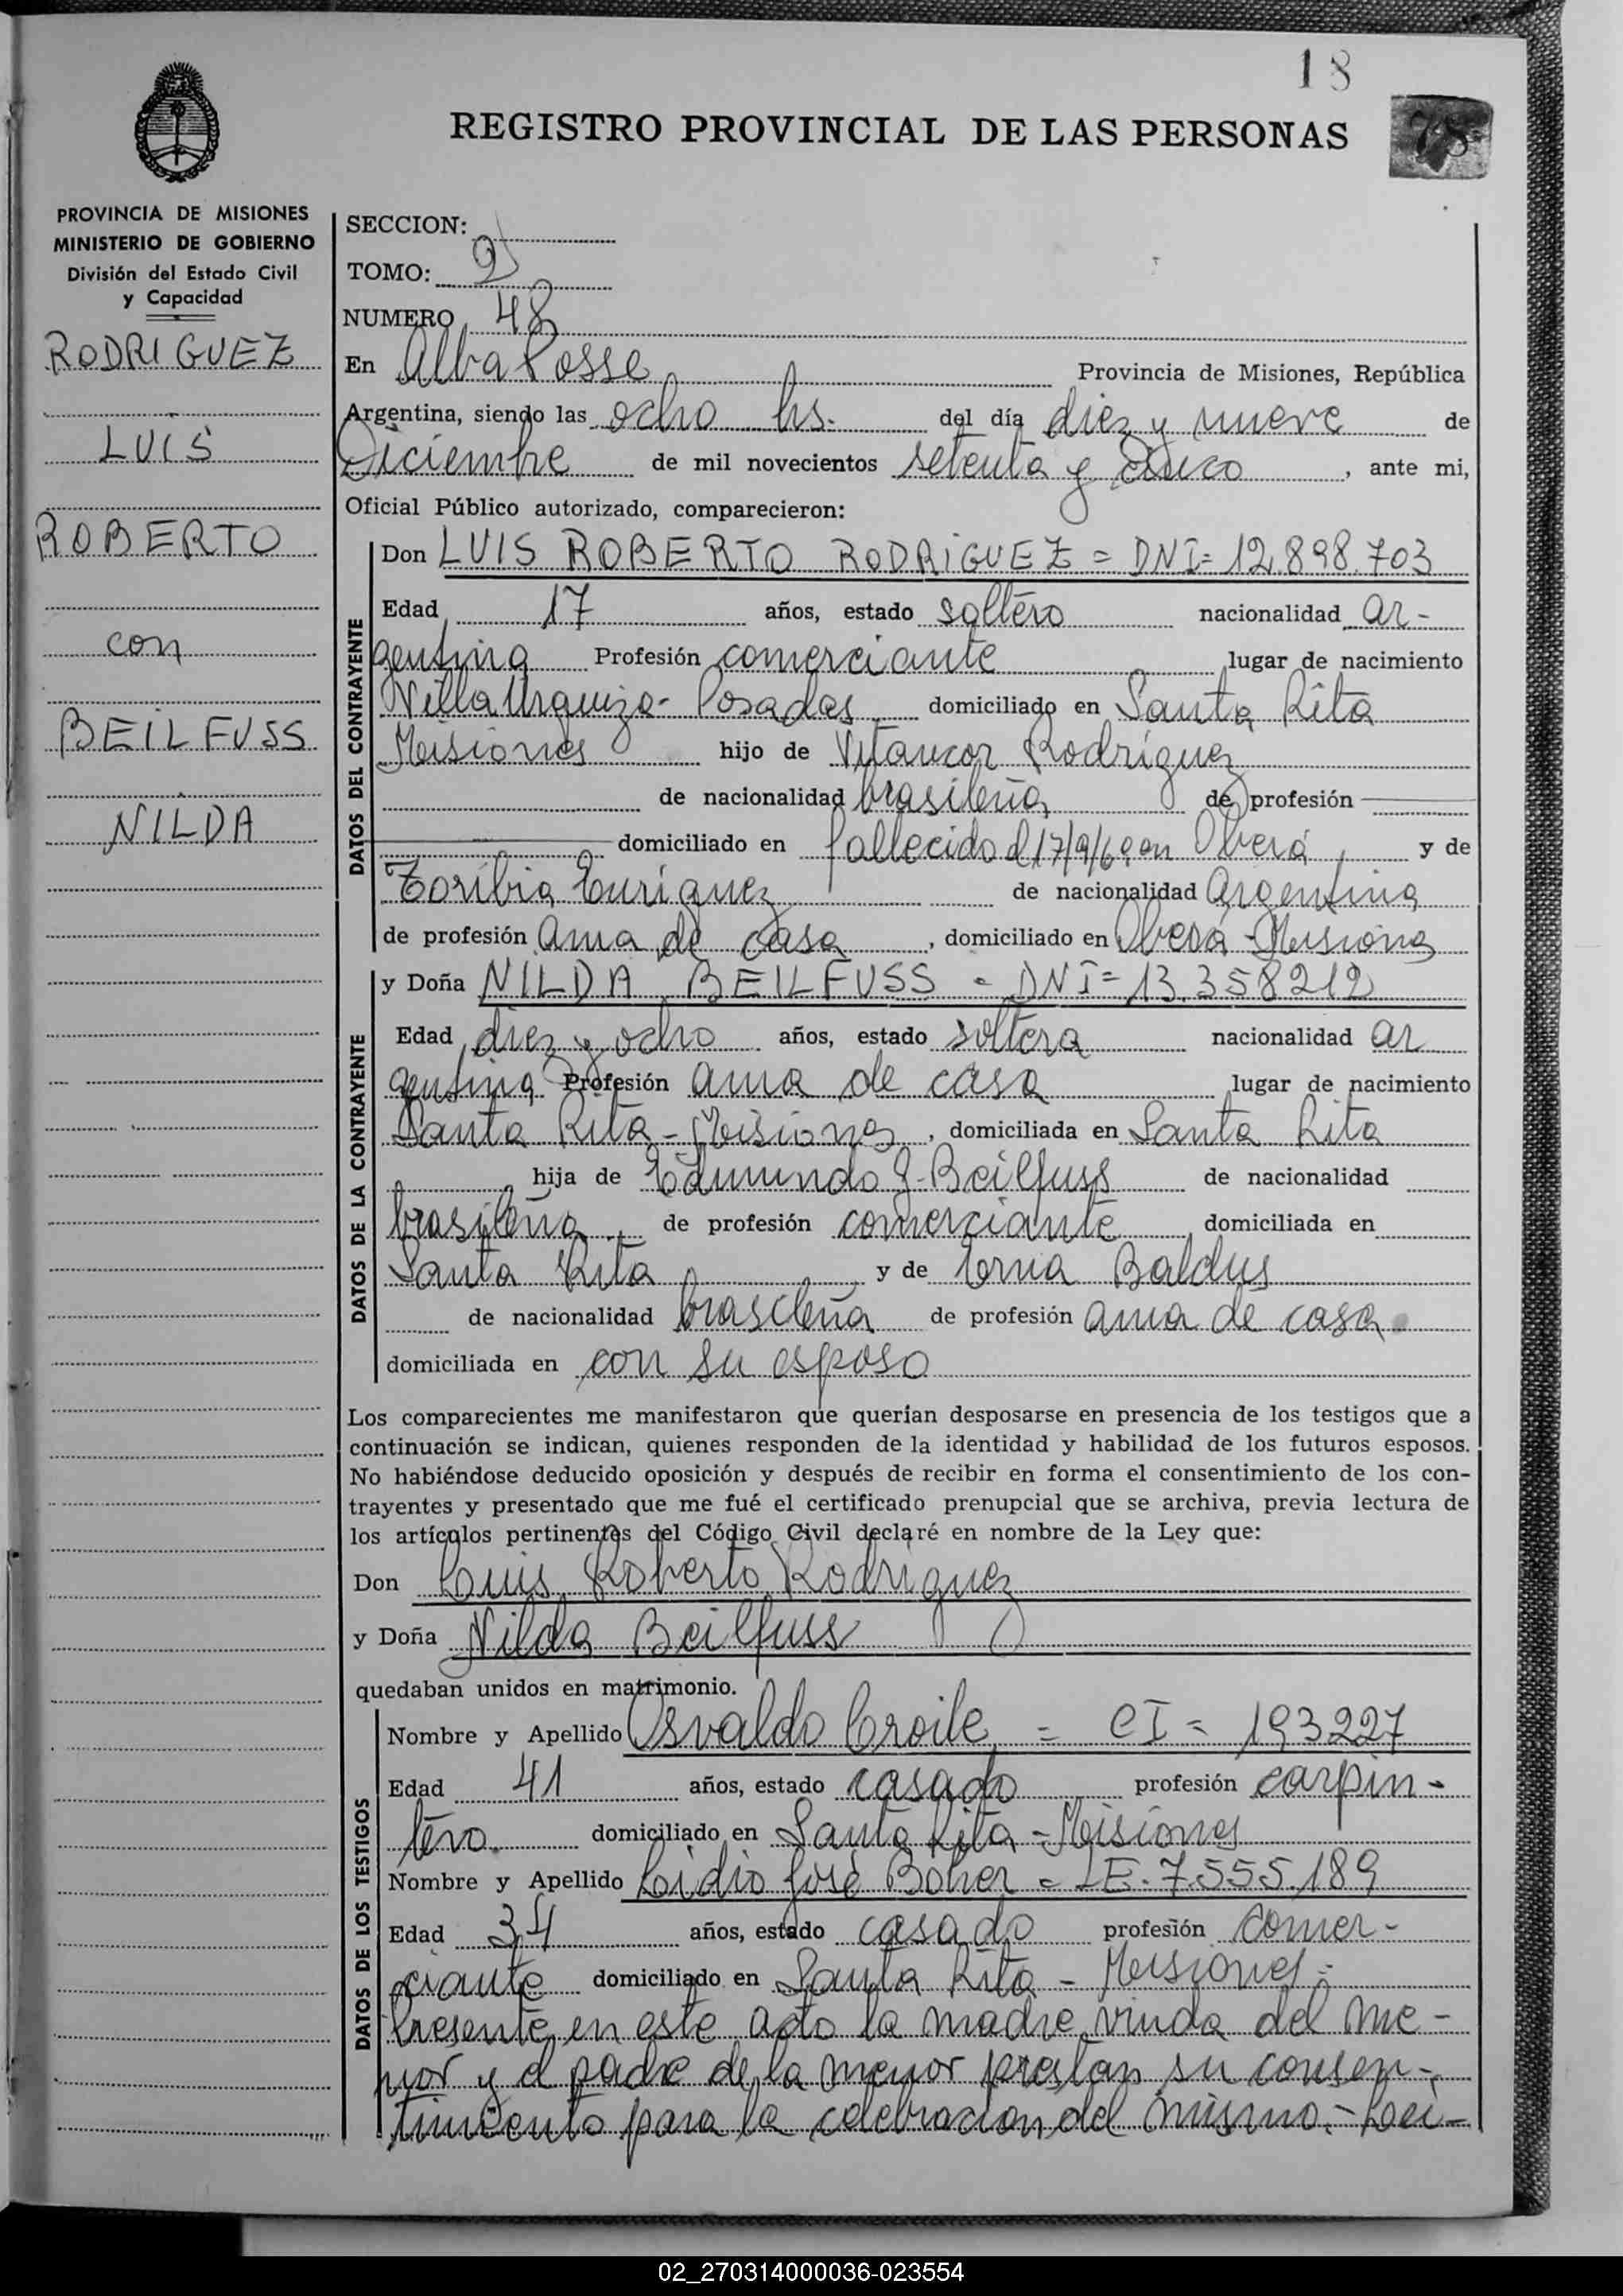 18
REGISTRO PROVINCIAL DE LAS PERSONAS
78
PROVINCIA DE MISIONES
MINISTERIO DE GOBIERNO
División del Estado Civil
y Capacidad
RODRIGUEZ
LUIS
ROBERTO
con
BEILFUSS
NILDA
SECCION:
TOMO: 2
NUMERO 48
En Alba Posse Provincia de Misiones, República
Argentina, siendo las ocho hs. del día diez y nueve de
Diciembre de mil novecientos setenta y cinco, ante mi,
Oficial Público autorizado, comparecieron:
DATOS DEL CONTRAYENTE
Don LUIS ROBERTO RODRIGUEZ = DNI= 12.898.703
Edad 17 años, estado soltero nacionalidad ar-
gentina Profesión comerciante lugar de nacimiento
Villa Urquiza- Posadas domiciliado en Santa Rita
Misiones hijo de Rodriguez
de nacionalidad brasileña de profesión
domiciliado en fallecido el 17/9/69 en Oberá, y de
Toribia Enriquez de nacionalidad Argentina
de profesión Ama de casa, domiciliado en Oberá - Misiones
DATOS DE LA CONTRAYENTE
y Doña NILDA BEILFUSS - DNI= 13.358212
Edad diez y ocho años, estado soltera nacionalidad ar
gentina Profesión ama de casa lugar de nacimiento
Santa Rita - Misiones, domiciliada en Santa Rita
hija de Edmundo Beilfuss de nacionalidad
brasileña de profesión comerciante domiciliada en
Santa Rita y de Erna Baldus
de nacionalidad brasileña de profesión ama de casa
domiciliada en con su esposo
Los comparecientes me manifestaron que querían desposarse en presencia de los testigos que a
continuación se indican, quienes responden de la identidad y habilidad de los futuros esposos.
No habiéndose deducido oposición y después de recibir en forma el consentimiento de los con-
trayentes y presentado que me fué el certificado prenupcial que se archiva, previa lectura de
los artículos pertinentes del Código Civil declaré en nombre de la Ley que:
Don Luis Roberto Rodriguez
y Doña Nilda Beilfuss
quedaban unidos en matrimonio.
DATOS DE LOS TESTIGOS
Nombre y Apellido Osvaldo Croile = CI= 193227
Edad 41 años, estado casado profesión carpin-
tero. domiciliado en Santa Rita - Misiones
Nombre y Apellido Lidio José Boher = LE. 7.555.189
Edad 34 años, estado casado profesión comer-
ciante domiciliado en Santa Rita - Misiones.-
Presente en este acto la madre viuda del me-
nor y el padre de la menor prestan su consen-
timiento para la celebracion del mismo.- Lei-
02_270314000036-023554